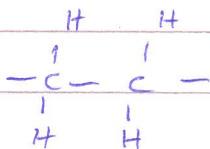 H H
- C - C -
H H